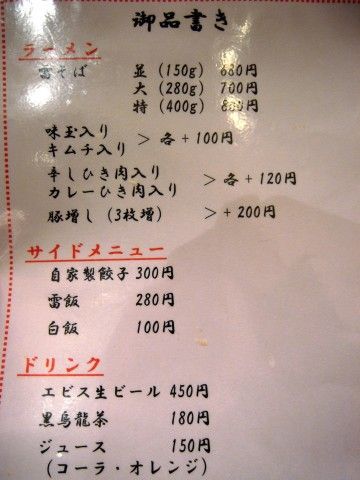 御品書き
ラーメン
雷そば 並(150g) 680円
大(280g) 700円
特(400g) 円
味玉入り
キムチ入り > 各+100円
辛しひき肉入り
カレーひき肉入り > 各+120円
豚増し(3枚増) >+200円
サイドメニュー
自家製餃子 300円
雷飯 280円
白飯 100円
ドリンク
エビス生ビール 450円
黒烏龍茶 180円
ジュース 150円
(コーラ・オレンジ)